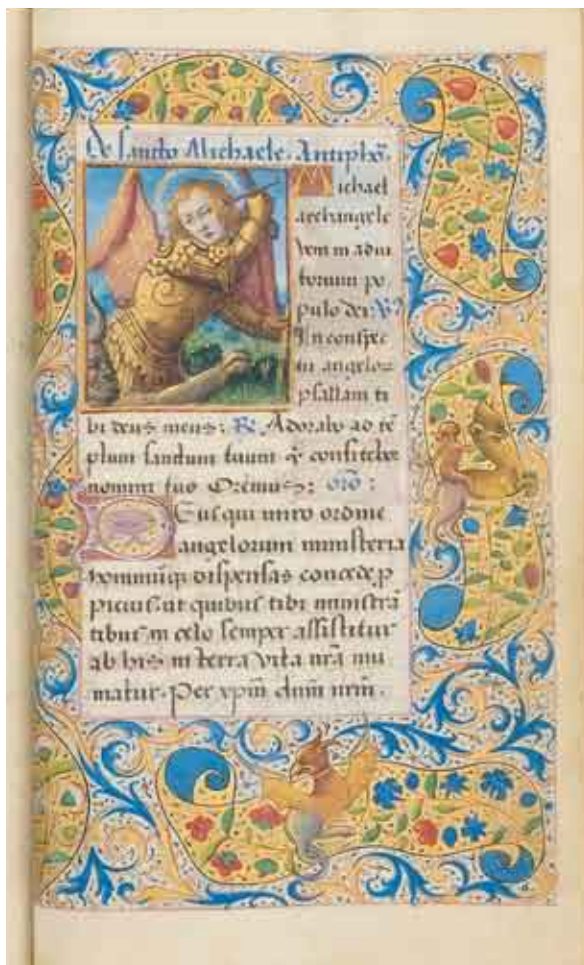 De sancto Michaele. Antiphō.
Michael
archangele
veni in adiu
torium po
pulo dei: V̄
In conspe
tu angeloꝝ
psallam ti
bi deus meus: R̄. Adorabo ad tē
plum sanctum tuum ⁊ confitebor
nomini tuo Oremus: orō:
Deus qui miro ordine
angelorum ministeria
hominūqꝫ dispensas concede ꝓ
picius ut quibus tibi ministrā
tibus in celo semper assistitur
ab his in terra vita nr̄a mu
niatur. Per xp̄m dnm nrm̄.